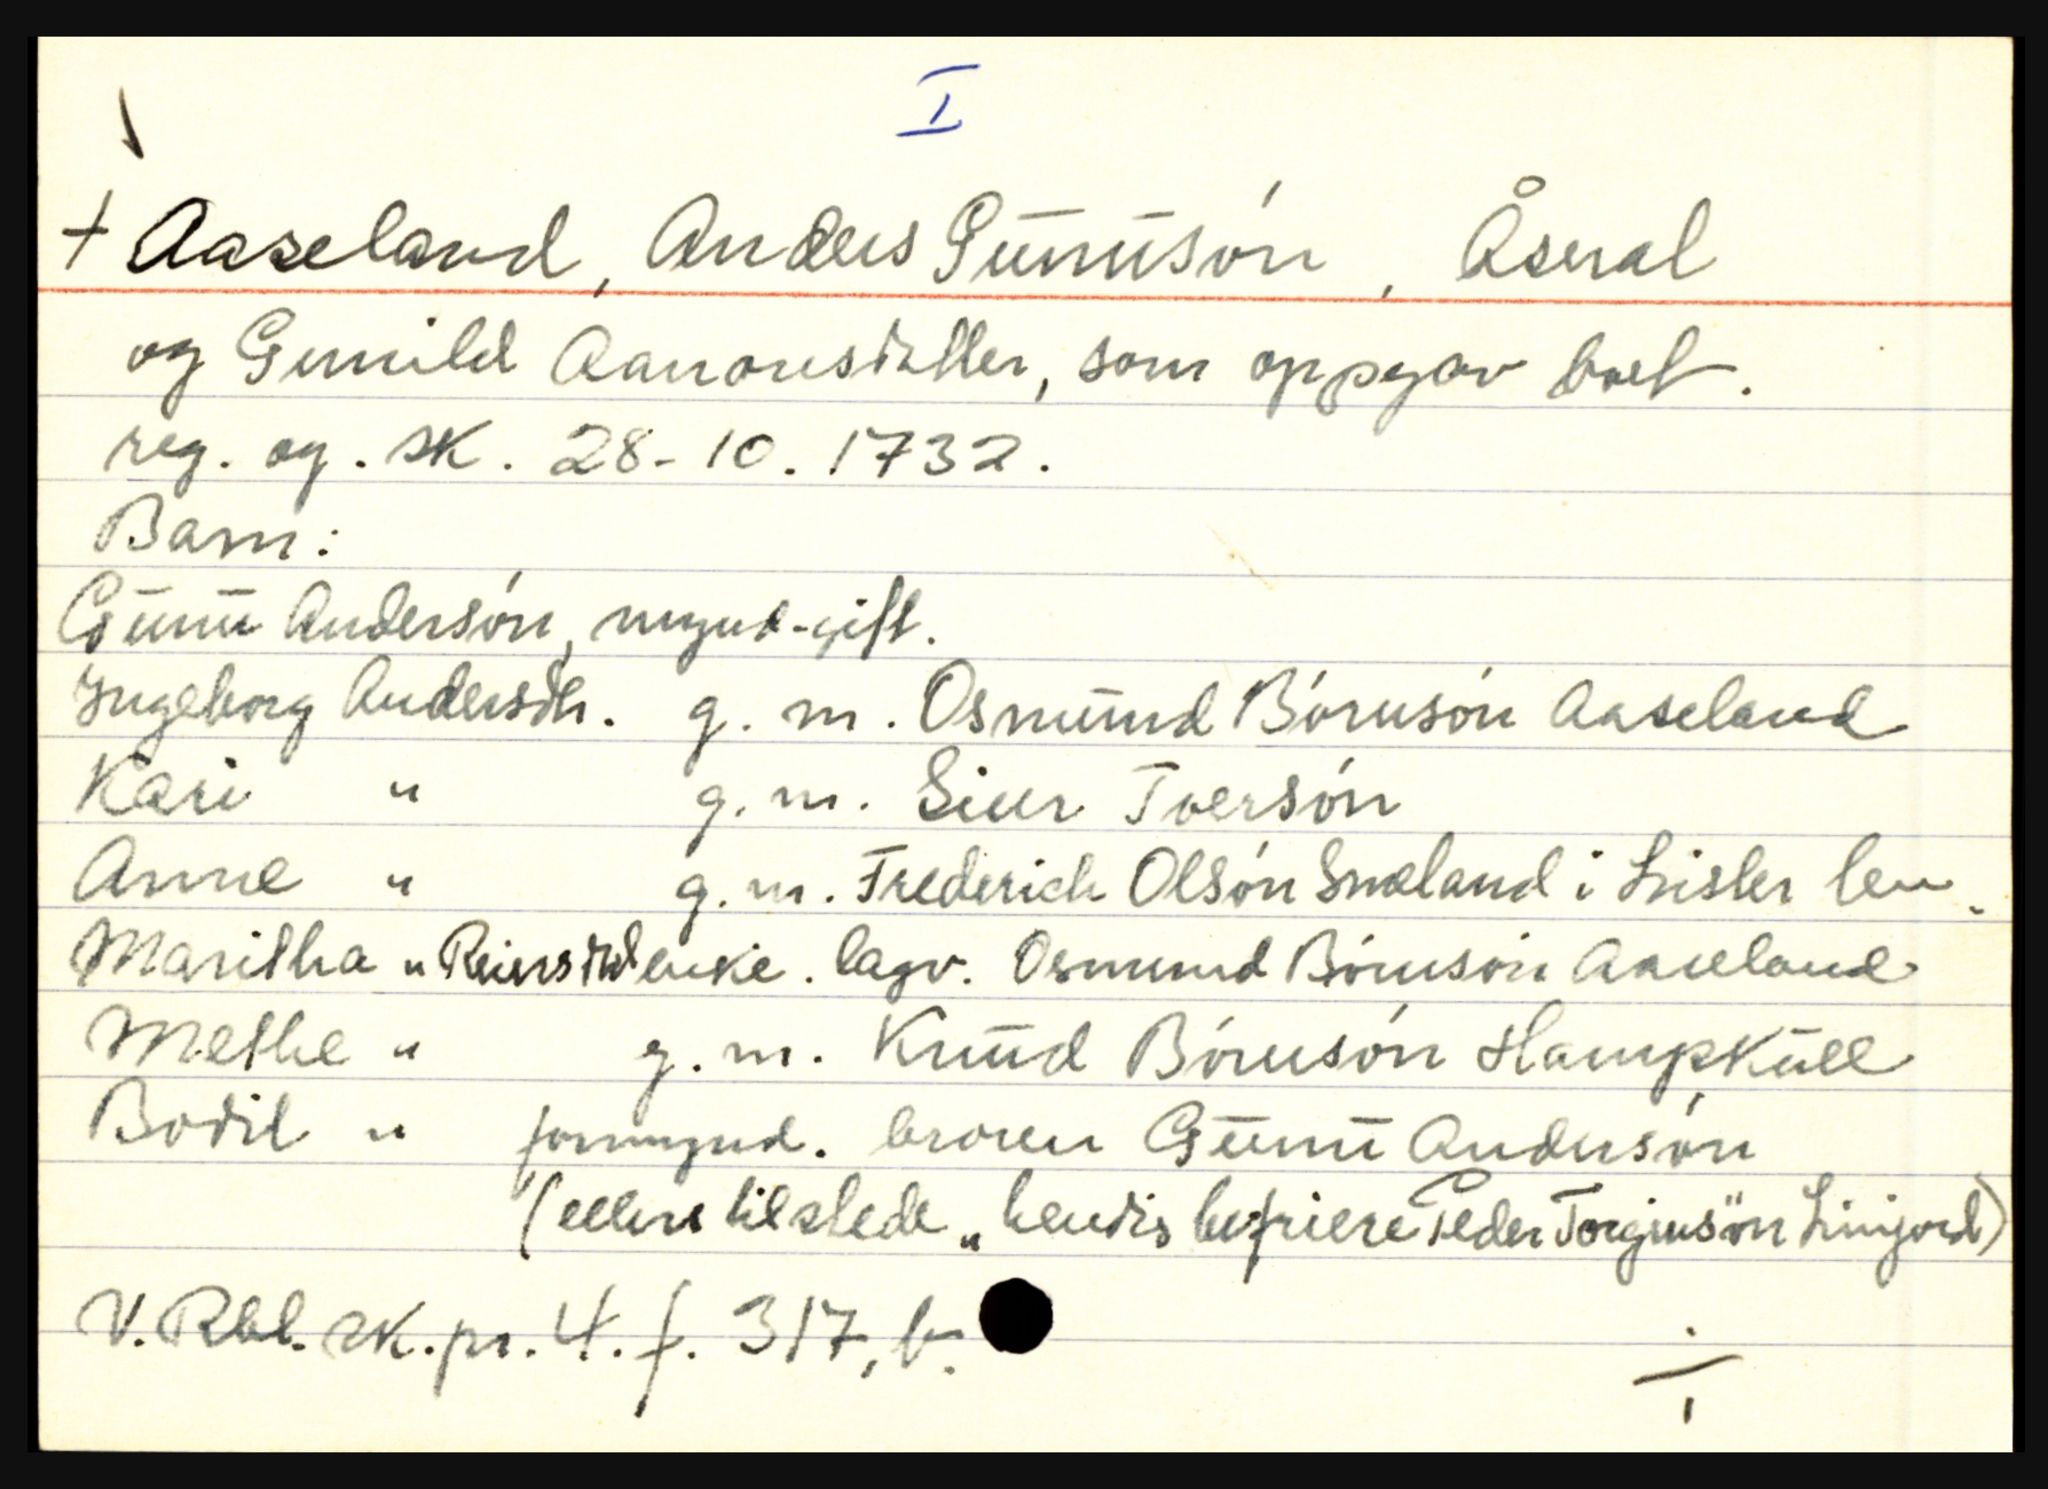 I
+ Aaseland, Anders Gūnūsón, Åseral
og Gunild Aanonsdatter, som oppgav boet.
reg. og. sk. 28-10. 1732.
Barn:
Gūnū Andersón, mynd-gift.
Ingeborg Andersdtr. g. m. Osmūnd Bórusón Aaseland
Kari " g. m. Siur Iversón
Anne " g. m. Frederich Olsón Smeland i Lister len.
Maritha " Reiersdtd enke. lagv. Osmund Bórusón Aaseland
Methe " g. m. Knūd Bórusón Hampkūll
Bodil " formynd. broren Gūnū Andersón
(ellers tilstede „hendis befriere Peder Torgiusön Linjord)
V. Rbl. sk. pr. 4. f. 317, b.
I